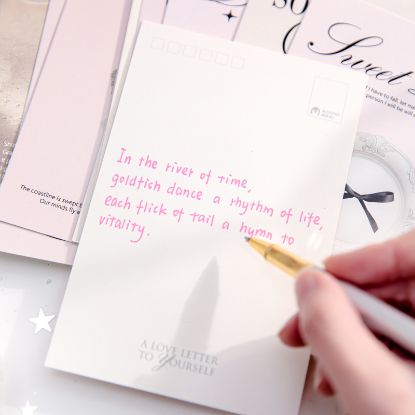 In the river of time,
goldfish dance a rhythm of life,
each flick of tail a hymn to
vitality.
A LOVE LETTER
TO YOURSELF
Sweet
The coastline is swept
Our minds fly